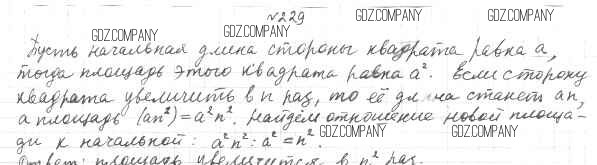 №229
GDZ.COMPANY GDZ.COMPANY
GDZ.COMPANY GDZ.COMPANY
Пусть начальная длина стороны квадрата равна a,
тогда площадь этого квадрата равна a². Если сторону
квадрата увеличить в n раз, то её длина станет an,
а площадь (an²)=a²n². Найдём отношение новой площа-
ди к начальной: a²n²:a²=n².
GDZ.COMPANY GDZ.COMPANY
Ответ: площадь увеличится в n² раз.